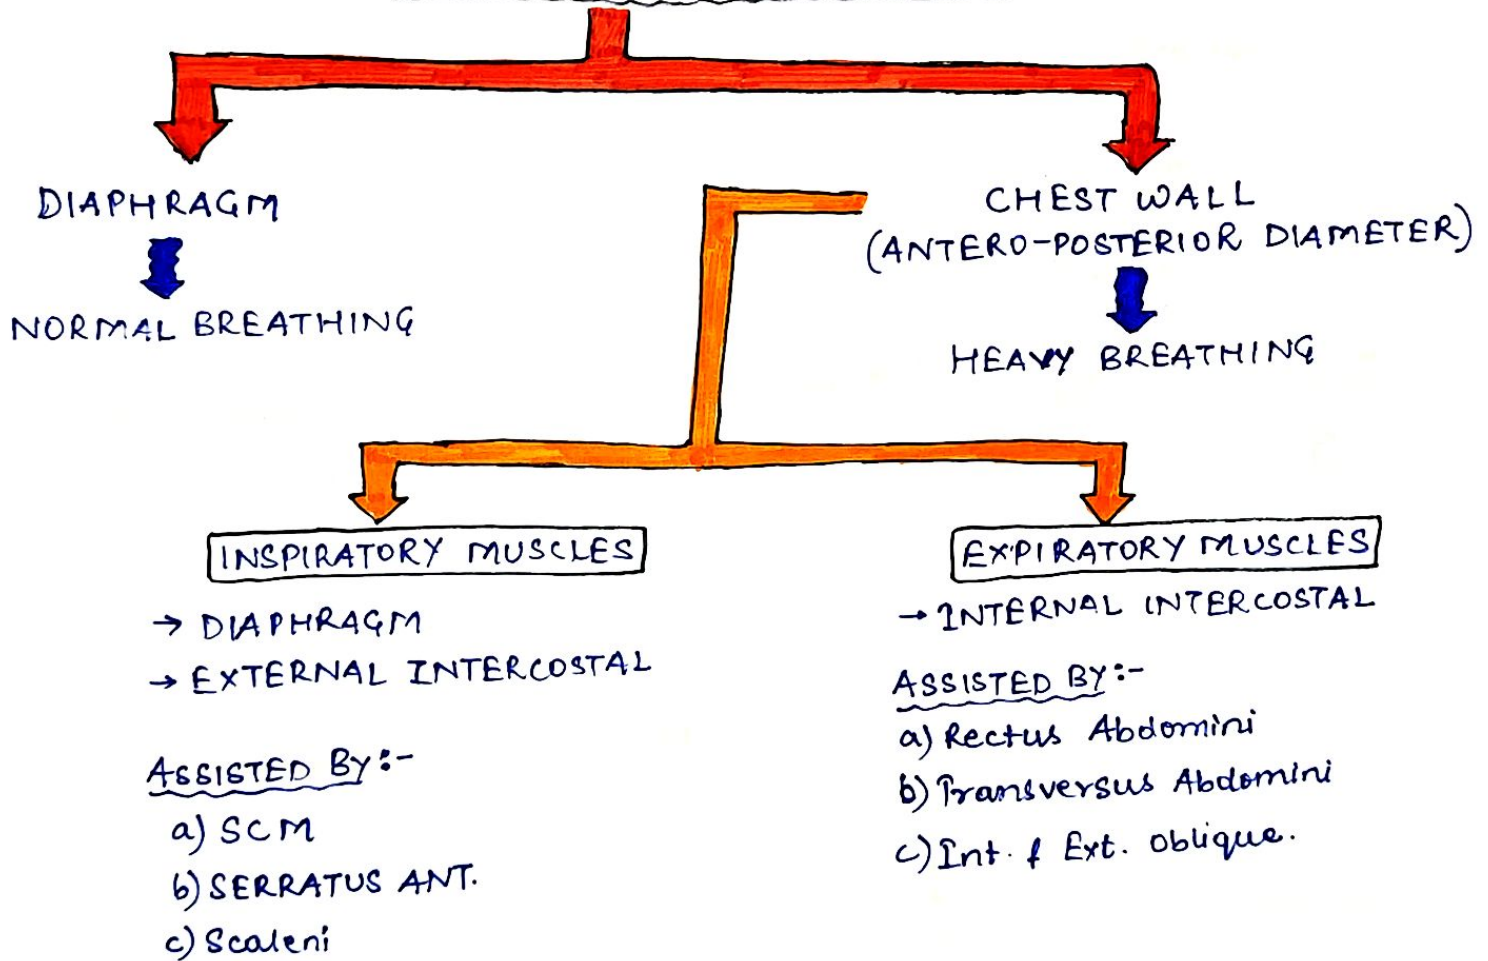 DIAPHRAGM
NORMAL BREATHING
CHEST WALL
(ANTERO-POSTERIOR DIAMETER)
HEAVY BREATHING
INSPIRATORY MUSCLES
→ DIAPHRAGM
→ EXTERNAL INTERCOSTAL
ASSISTED BY:-
a) SCM
b) SERRATUS ANT.
c) Scaleni
EXPIRATORY MUSCLES
→ INTERNAL INTERCOSTAL
ASSISTED BY:-
a) Rectus Abdomini
b) Transversus Abdomini
c) Int. & Ext. Oblique.